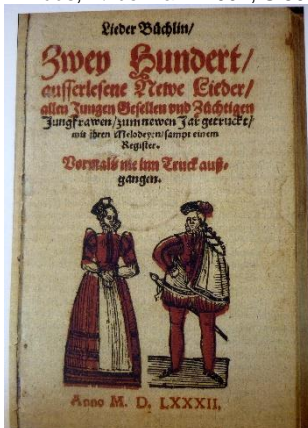 Lieder Büchlin/
Zwey Hundert/
ausserlesene Newe Lieder/
allen Jungen Gesellen vnd Züchtigen
Jungfrawen/zum newen Jar getruckt/
mit ihren Melodeyen/sampt einem
Register.
Vormals nie inn Truck auß-
gangen.
Anno M. D. LXXXII.